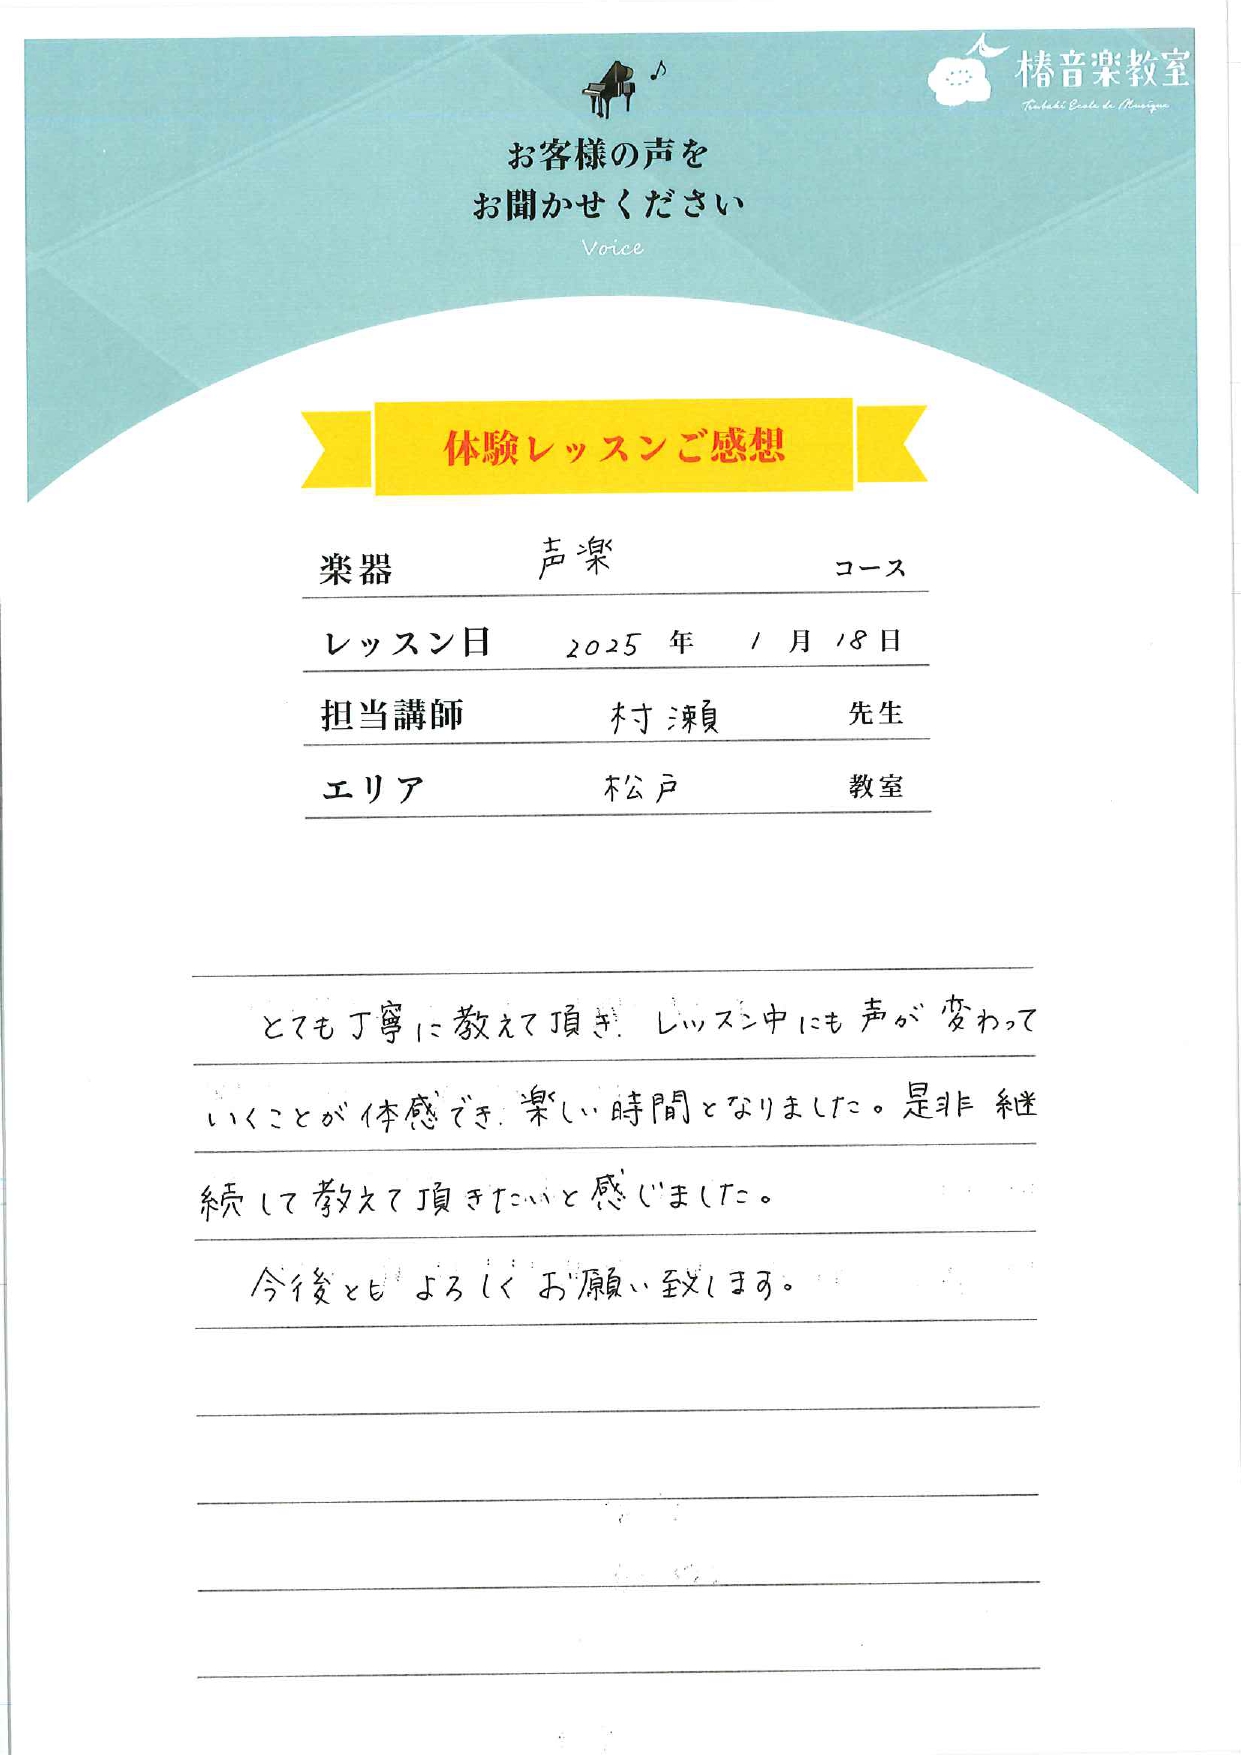 椿音楽教室
Tsubaki Ecole de Musique
お客様の声を
お聞かせください
Voice
体験レッスンご感想
楽器 声楽 コース
レッスン日 2025 年 1 月 18 日
担当講師 村瀬 先生
エリア 松戸 教室
とても丁寧に教えて頂き、レッスン中にも声が変わって
いくことが体感でき、楽しい時間となりました。是非 継
続して教えて頂きたいと感じました。
今後ともよろしくお願い致します。